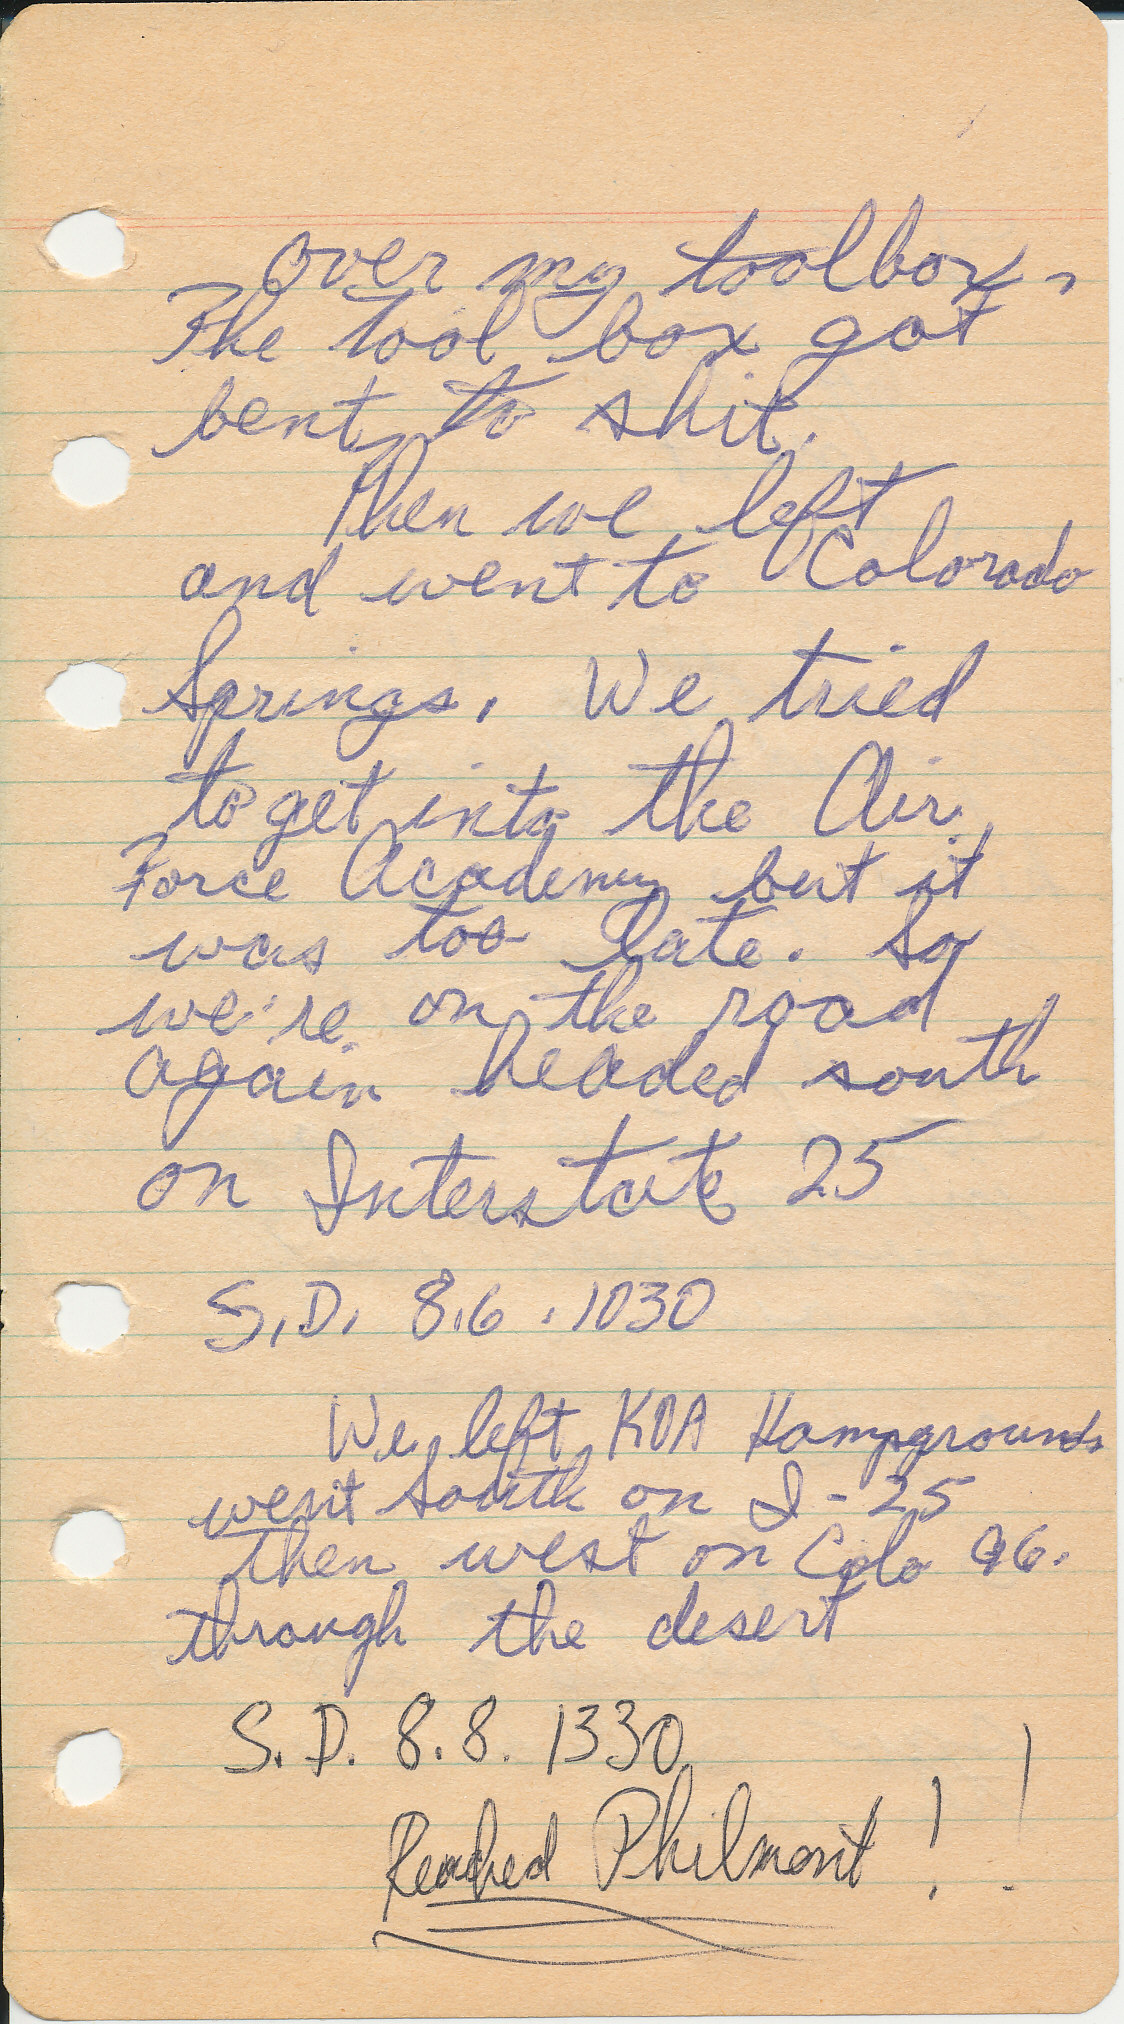 over my toolbox,
The tool box got
bent to shit.
Then we left
and went to Colorado
Springs. We tried
to get into the Air
Force Academy but it
was too late. So
we're on the road
again headed south
on Interstate 25
S.D. 8.6.1030
We left KOA Kampgrounds
went South on I-25
then west on Colo 96.
through the desert
S.D. 8.8. 1330
Reached Philmont!!